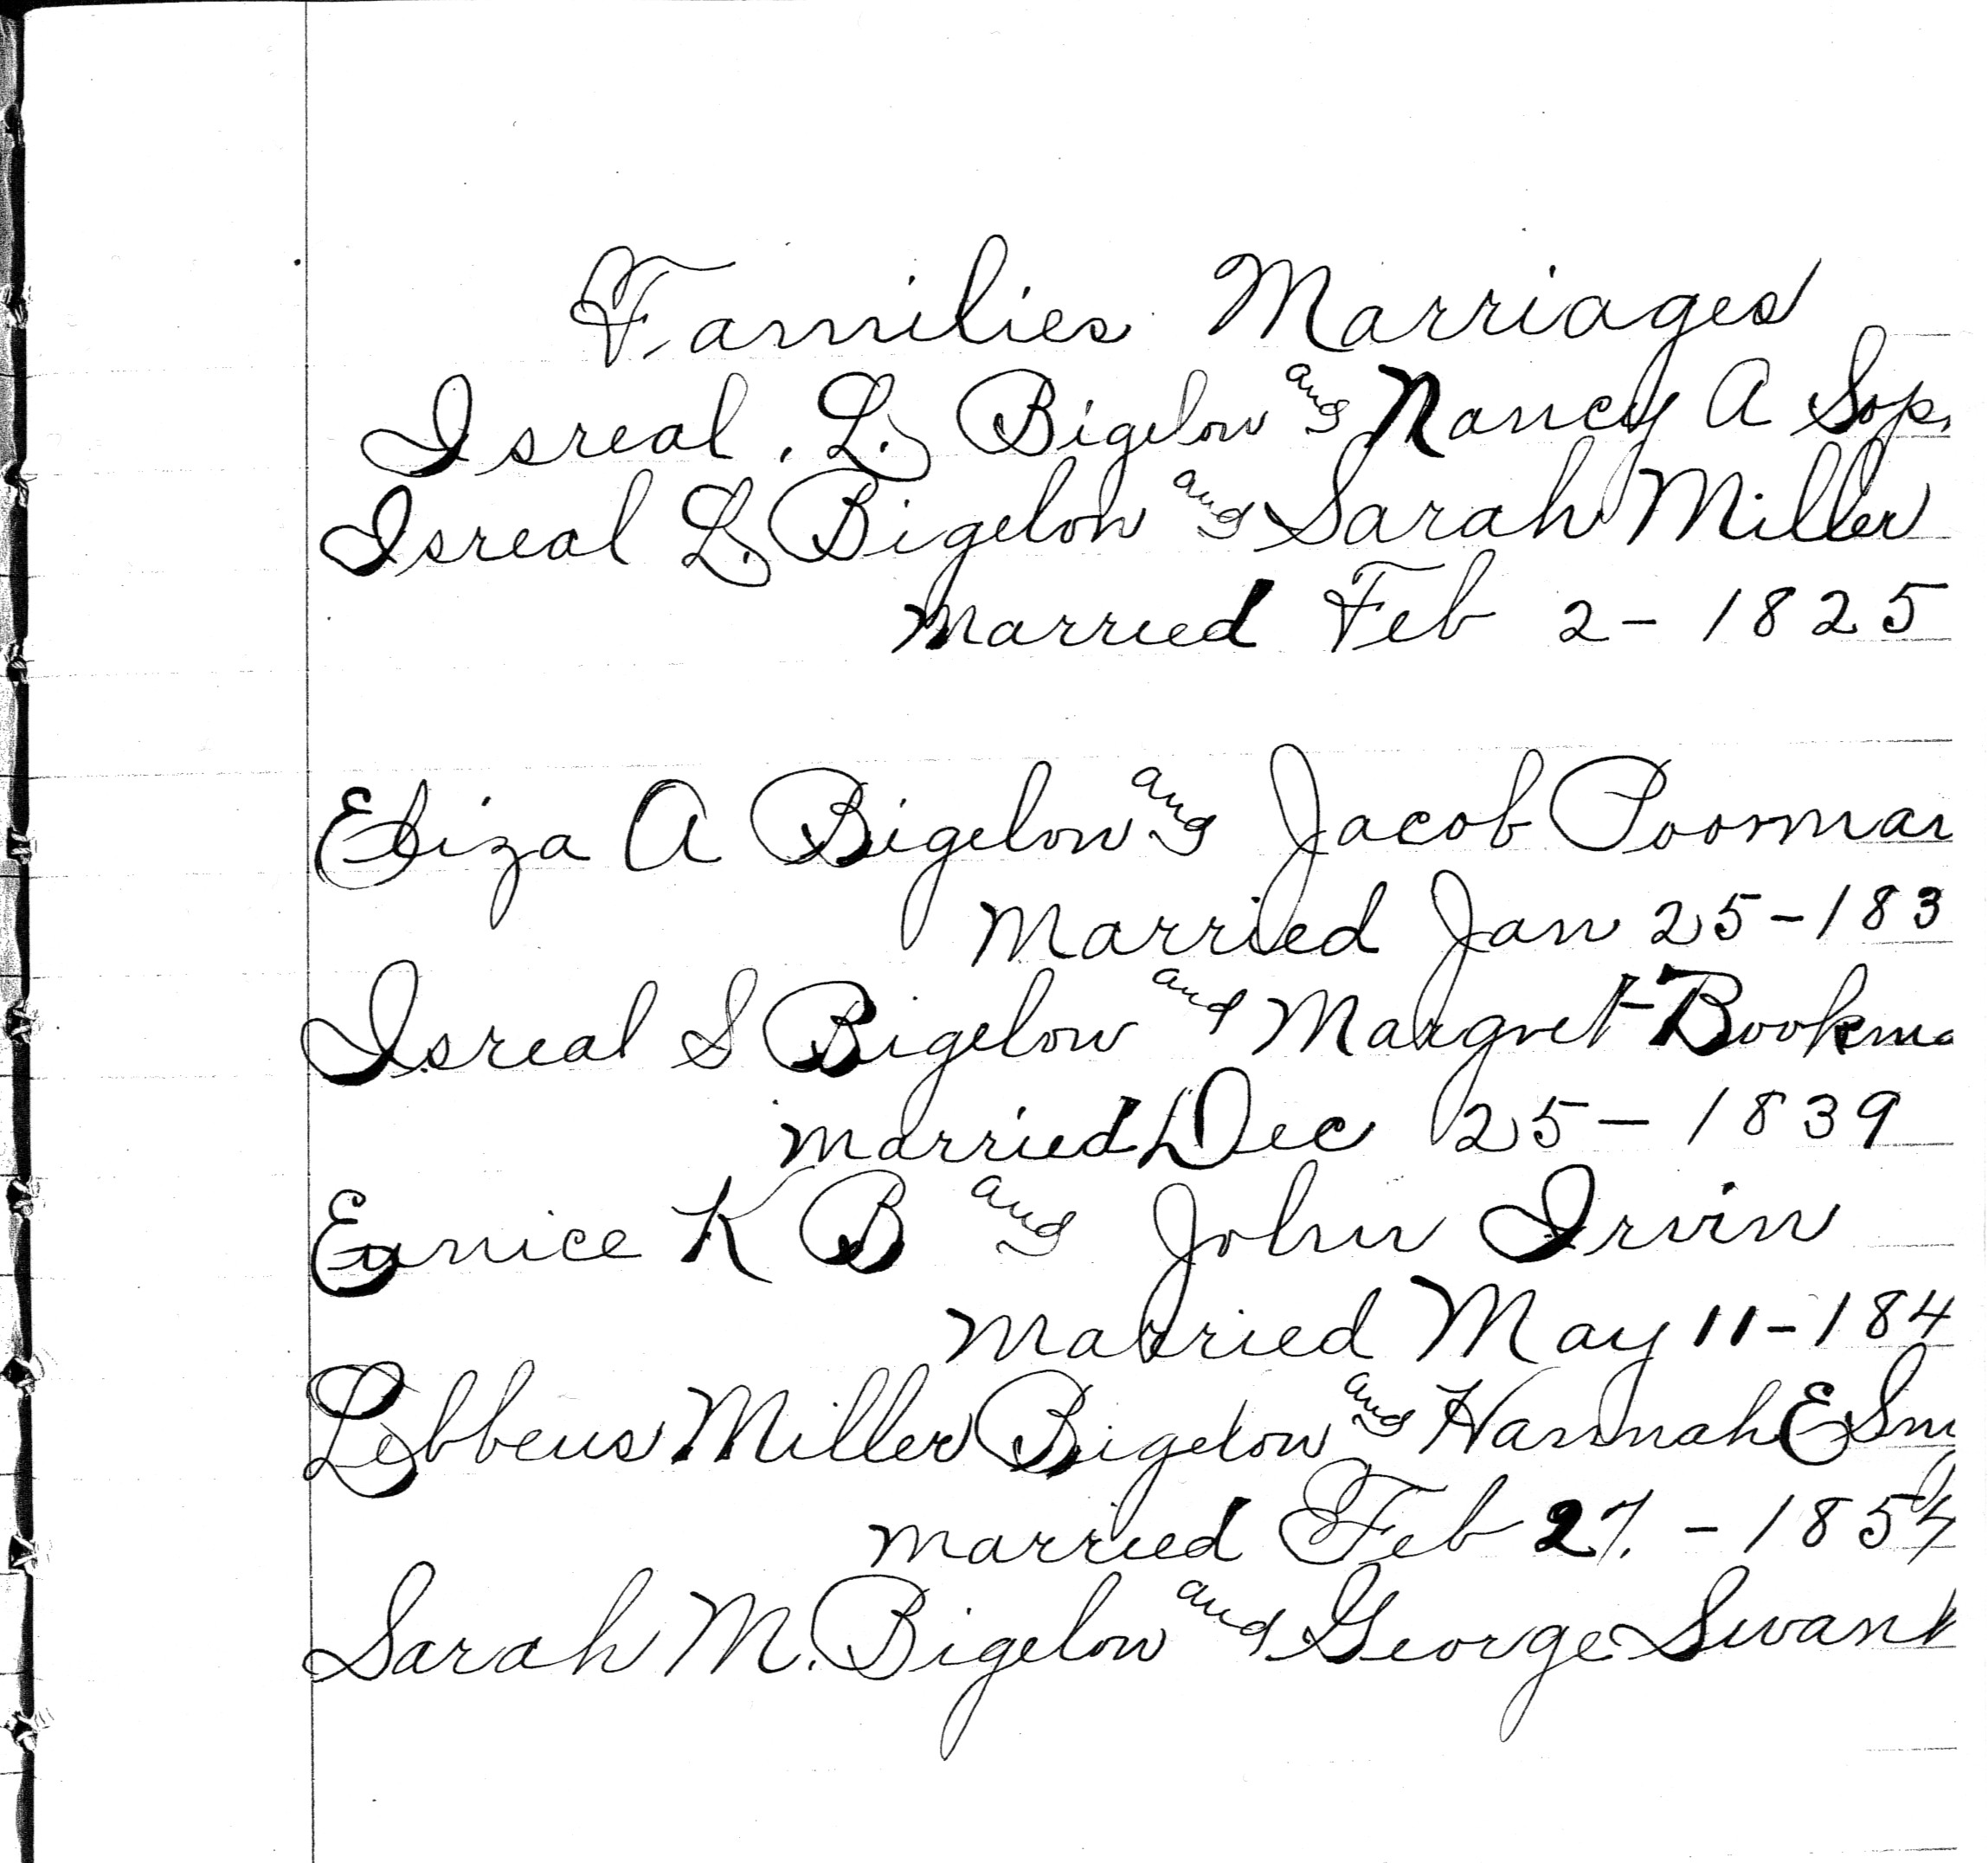 Families Marriages
Isreal. L. Bigelow and Nancy A Sop
Isreal L. Bigelow and Sarah Miller
Married Feb 2 - 1825
Eliza A Bigelow and Jacob Poorman
Married Jan 25 - 183
Isreal S Bigelow and Margret Bookma
Married Dec 25 - 1839
Eunice K B and John Irvin
Married May 11 - 184
Lebbeus Miller Bigelow and Hannah E
Married Feb 27. - 1854
Sarah M. Bigelow and George Swank